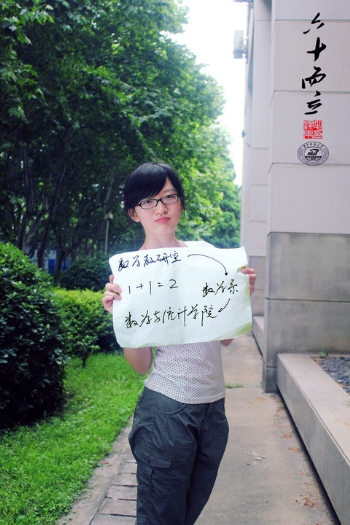 六十而立
数学教研室
1+1=2 数学系
数学与统计学院